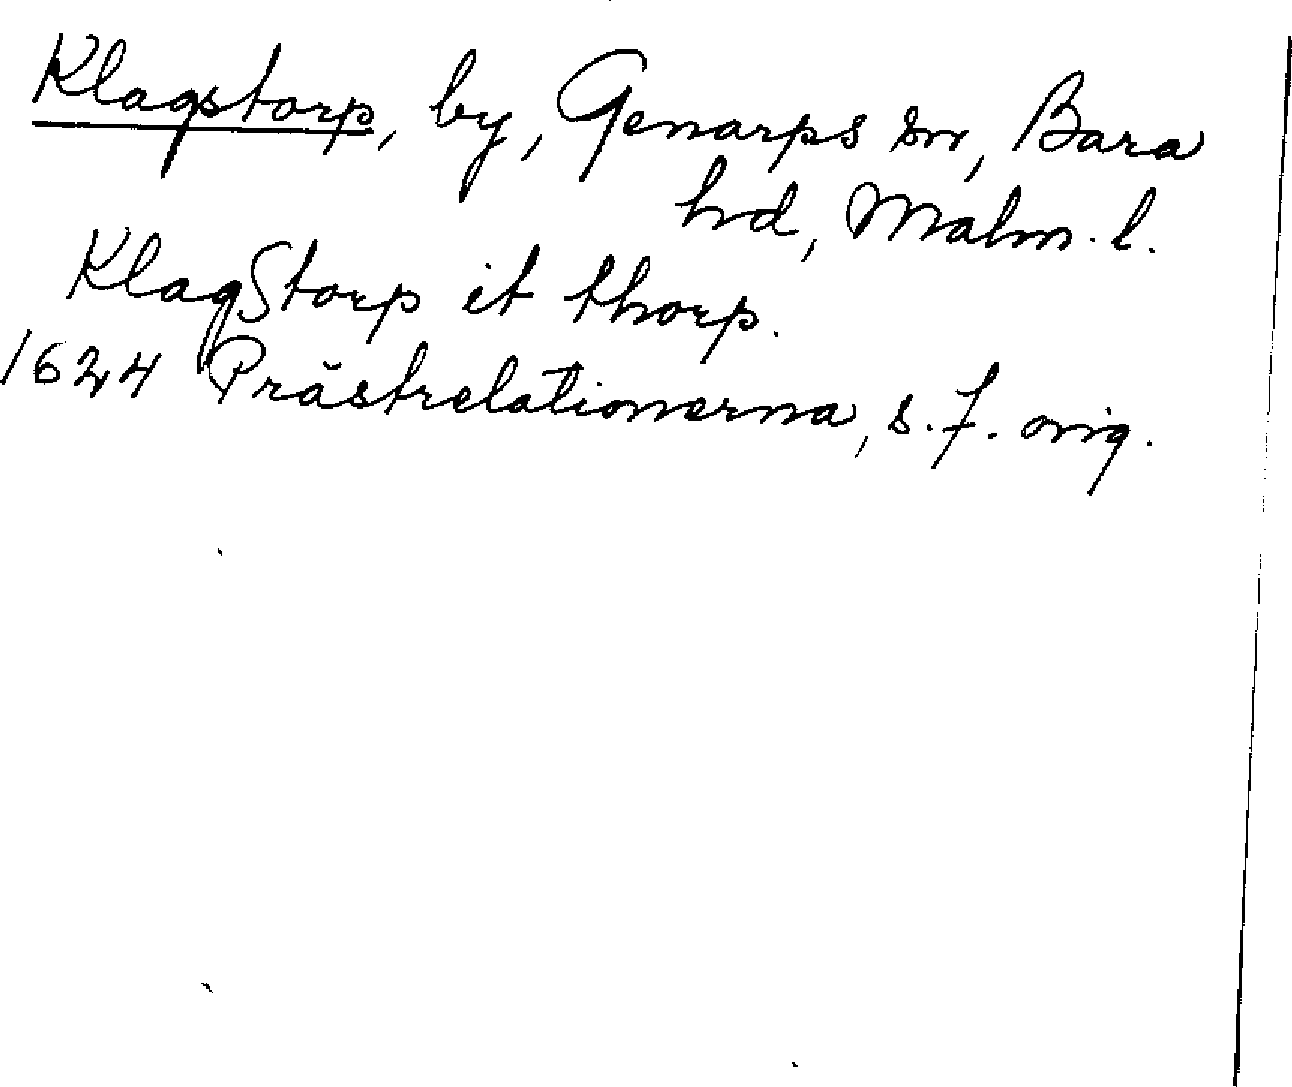 Klagstorp, by, Genarps sn, Bara
hd, Malm. l.
KlagStorp it thorp.
1624 Prästrelationerna, s. 7. orig.